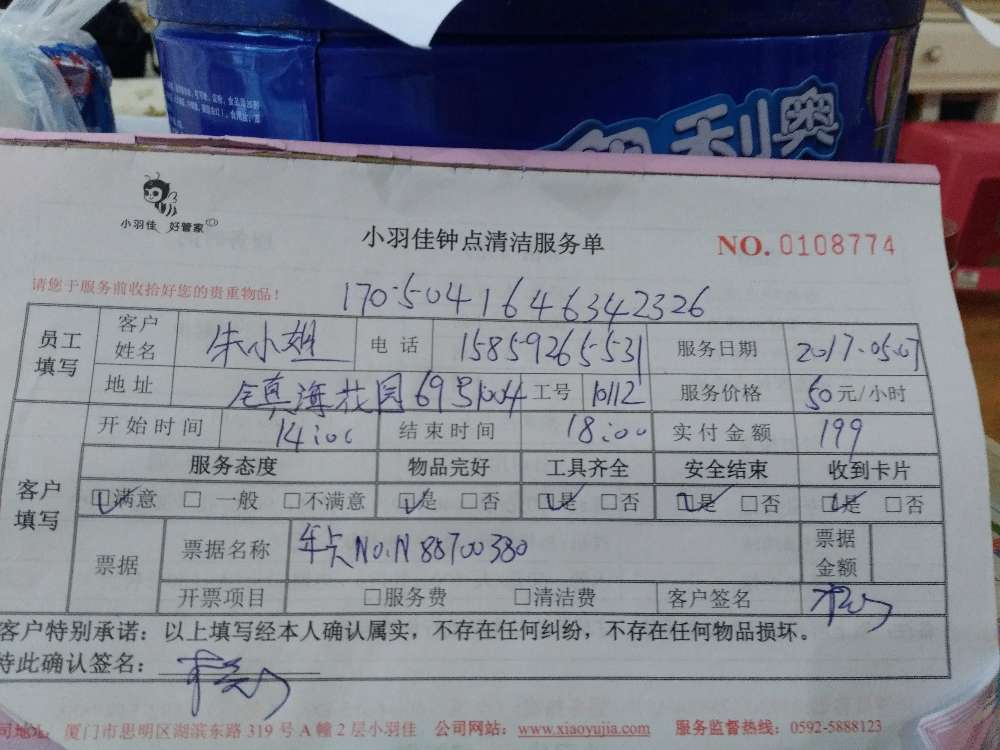 奥利奥
小羽佳 好管家
小羽佳钟点清洁服务单
NO. 0108774
请您于服务前收拾好您的贵重物品！
1705041646342326
员工填写 客户姓名 朱小姐 电话 15859265531 服务日期 2017.05.07
地址 镇海花园69号1004 工号 10112 服务价格 50元/小时
客户填写 开始时间 14:00 结束时间 18:00 实付金额 199
服务态度 物品完好 工具齐全 安全结束 收到卡片
☑满意 □一般 □不满意 ☑是 □否 ☑是 □否 ☑是 □否 ☑是 □否
票据 票据名称 年卡 No.N88700380 票据金额
开票项目 □服务费 □清洁费 客户签名
客户特别承诺：以上填写经本人确认属实，不存在任何纠纷，不存在任何物品损坏。
特此确认签名：
司地址：厦门市思明区湖滨东路319号A幢2层小羽佳 公司网站：www.xiaoyujia.com 服务监督热线：0592-5888123